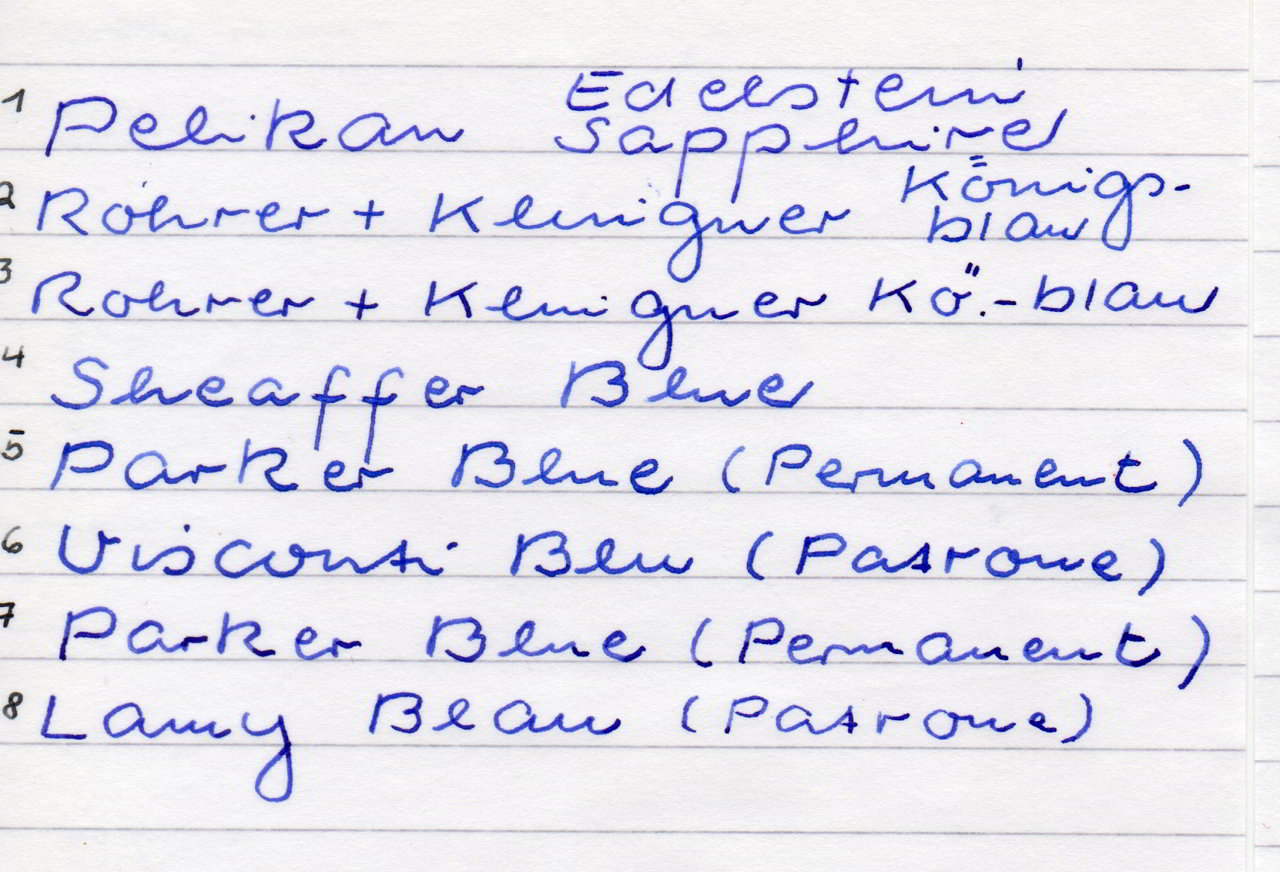 1 Pelikan Edelstein Sapphire
2 Rohrer + Klingner Königs-
blau
3 Rohrer + Klingner Kö.-blau
4 Sheaffer Blue
5 Parker Blue (Permanent)
6 Visconti Blu (Patrone)
7 Parker Blue (Permanent)
8 Lamy Blau (Patrone)